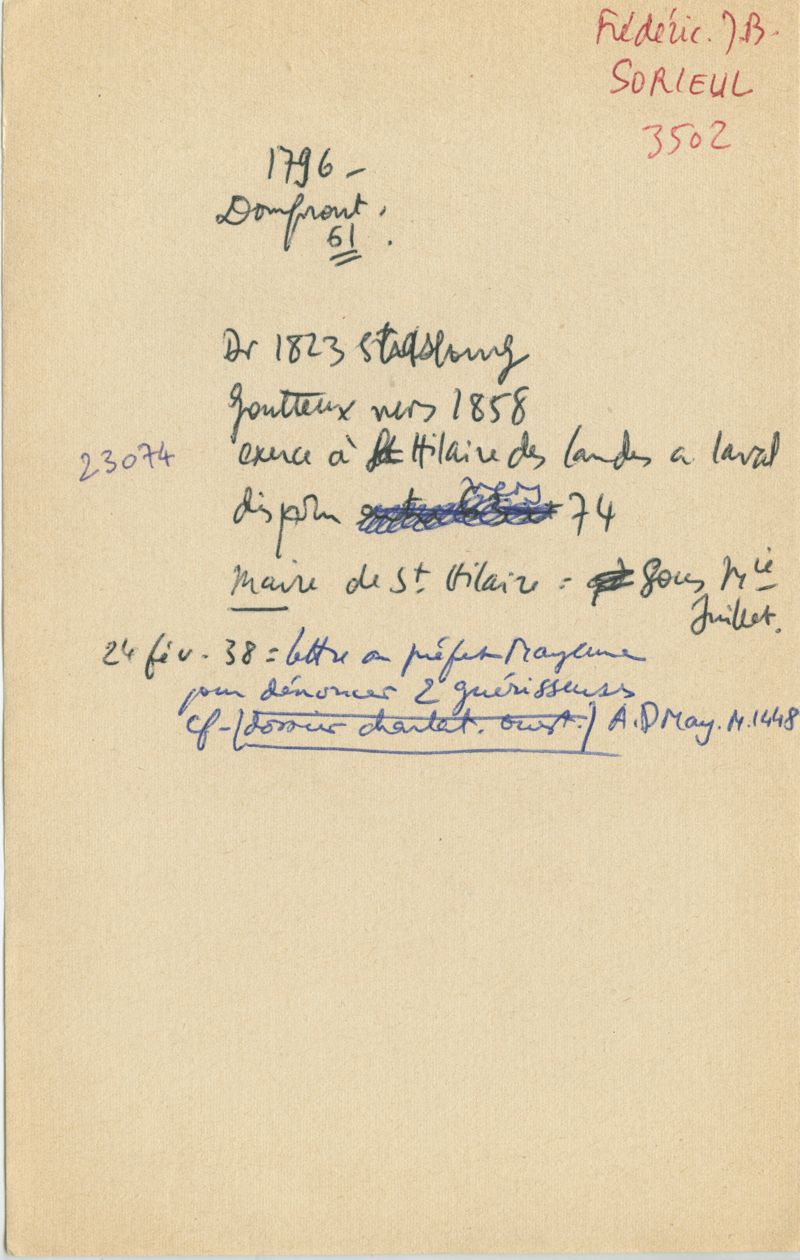 Frédéric. J.B.
SORIEUL
3502
1796 -
Domfront.
61.
Dr 1823 Strasbourg
goutteux vers 1858
23074
exerce à St Hilaire des landes a laval
vers
74
Maire de St Hilaire = sous Mie
Juillet.
24 fév. 38 = lettre au préfet Mayenne
pour dénoncer 2 guérisseuses
cf-(dossier charlat. ouest.) A.D May. M.1448